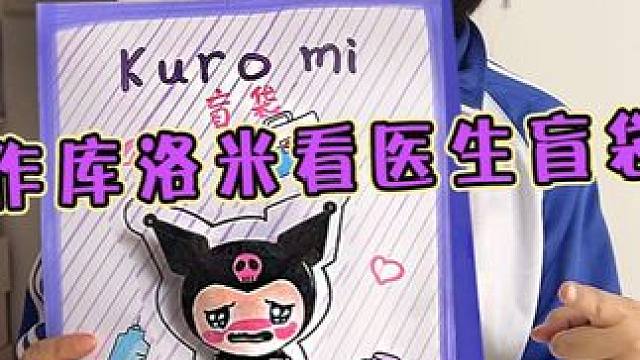 Kuromi
盲袋
作库洛米看医生盲袋